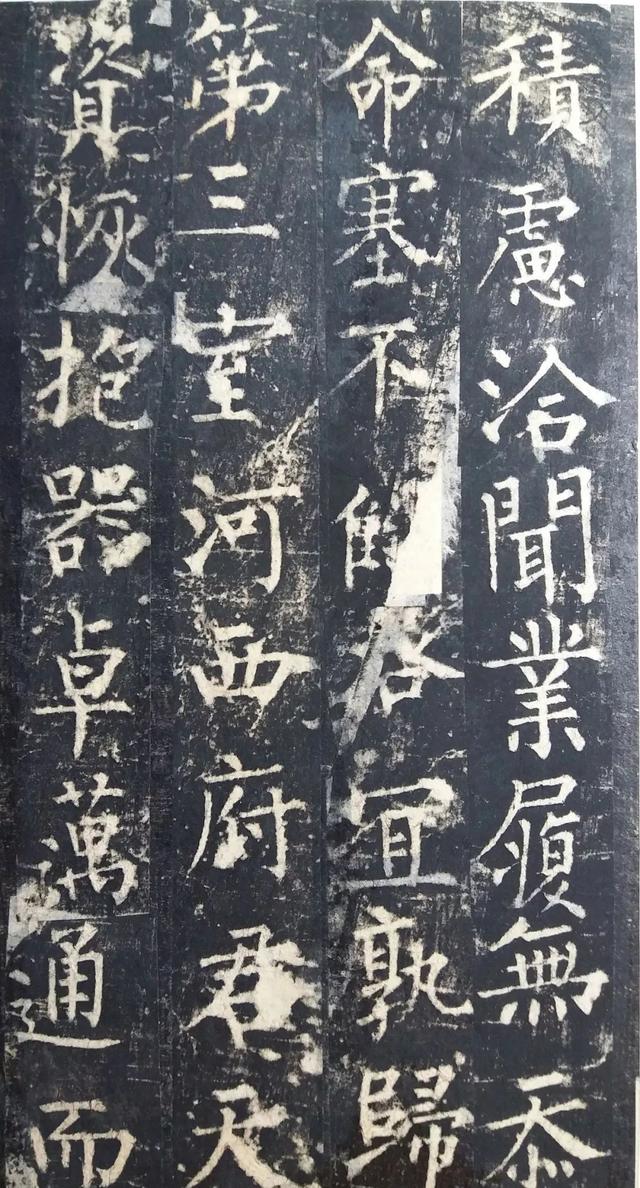 積慮洽聞業履無忝
命塞不的咎宜孰歸
第三室河西府君天
資恢抱器卓邁通而